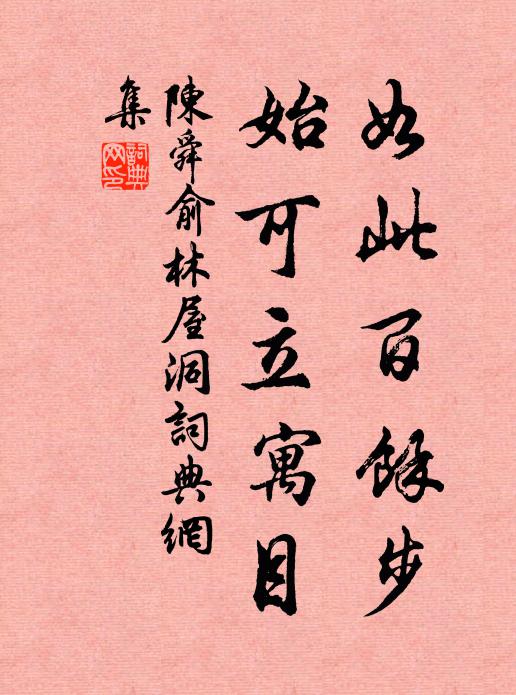 如此百餘步
始可立寓目
陳舜俞林屋洞詞典網
集
詞典網印